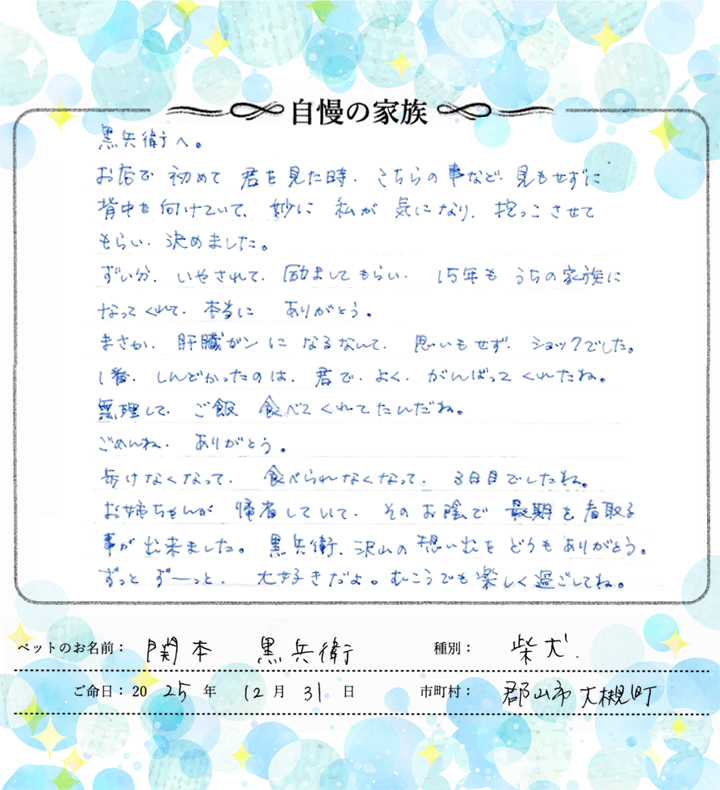 自慢の家族
黒兵衛へ。
お店で 初めて 君を見た時、こちらの事など、見もせずに
背中を向けていて、妙に 私が 気になり、抱っこさせて
もらい、決めました。
ずい分、いやされて、励ましてもらい、15年も うちの家族に
なってくれて、本当に ありがとう。
まさか、肝臓ガンに なるなんて、思いもせず、ショックでした。
1番、しんどかったのは、君で、よく、がんばって くれたね。
無理して、ご飯 食べてくれてたんだね。
ごめんね、ありがとう。
歩けなくなって、食べられなくなって、3日目でしたね。
お姉ちゃんが 帰省していて、そのお陰で 最期を看取る
事が出来ました。黒兵衛、沢山の想い出をどうもありがとう。
ずっと ずーっと、大好きだよ。むこうでも楽しく過ごしてね。
ペットのお名前： 関本 黒兵衛 種別： 柴犬.
ご命日：2025年 12月 31日 市町村： 郡山市大槻町